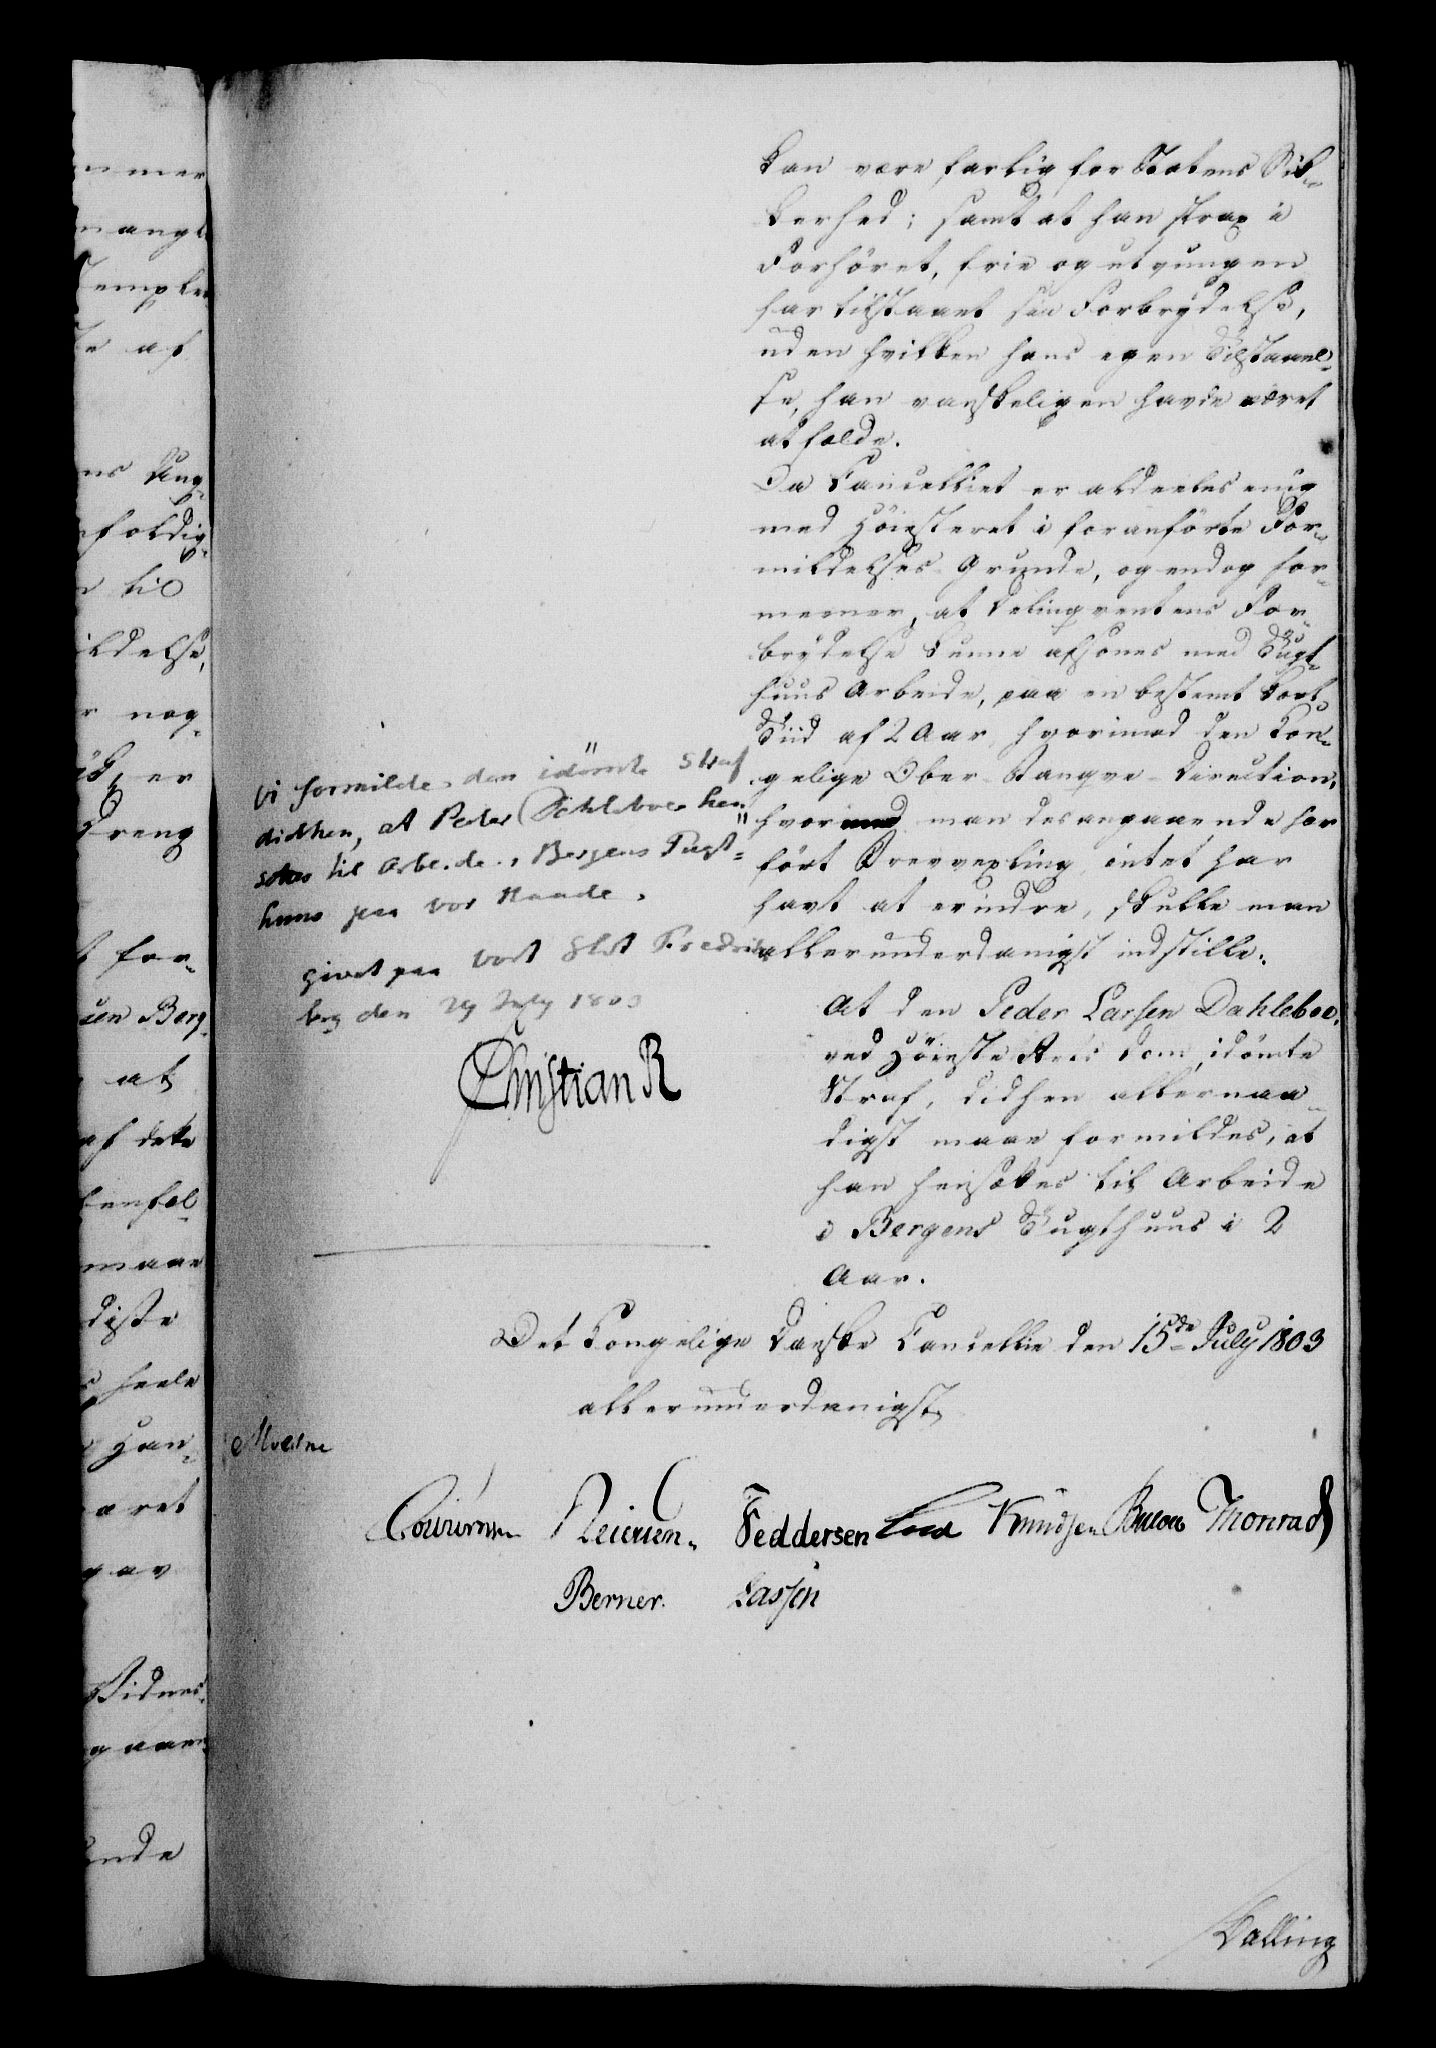 kan være farlig for Statens Sik-
kerhed; samt at han strax i
Forhöret, frie og utvungen
har tilstaaet sin Forbrydelse,
uden hvilken hans egen Tilstaael-
se, han vanskeligen havde været
at fælde.
Da Cancelliet er aldeeles enig
med Höiesteret i foranförte For-
mildelses-Grunde, og endog for-
meener, at Delinqventens For-
brydelse kunne afsones med Tugt-
huus Arbeide, paa en bestemt kort
Tiid af 2 Aar, hvorimod den Kon-
gelige Ober-Stangve-Direction,
hvormed man desangaaende har
fört Brevvexling, intet har
havt at erindre, skulle man
allerunderdanigst indstille:
At den Peder Larsen Dahleboe,
ved Höieste Rets Dom, idömte
Straf, didhen allernaa-
digst maae formildes, at
han hensættes til Arbeide
i Bergens Tugthuus i 2
Aar.
Vi formilde den idömte Straf
didhen, at Peder Dahleboe hen
settes til Arbeide i Bergens Tugt-
huus paa vor Naade.
givet paa vort Slot Fredrichs
berg den 29 July 1803
Christian R
Det Kongelige Danske Cancellie den 15de July 1803
allerunderdanigst
Moestue
Feddersen Knudsen Bülow Monrad
Berner. Lassen
Dalling
mmer
mangl
Templer
te af
ns Ung-
nfoldig-
n til
ildelse,
r nog-
er
dreng
t for-
uen Berg-
at
af dette
tenfæl-
maae
diste
s heele
Han-
aret
gav
Vidnes-
gaaer
unde